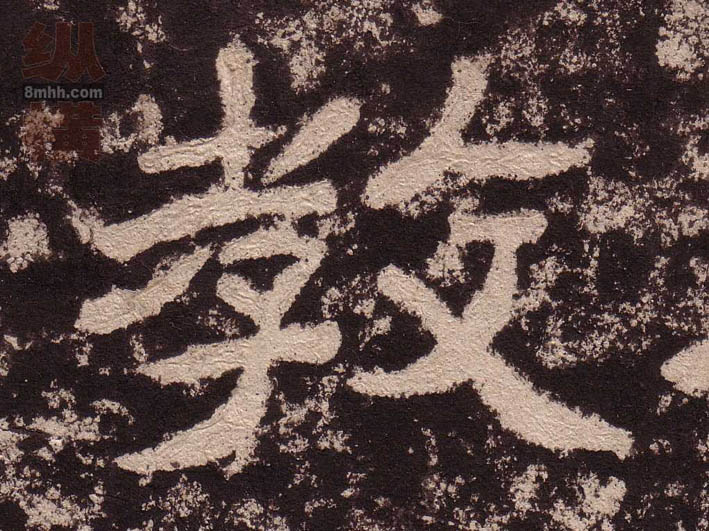 教
纵横
8mhh.com